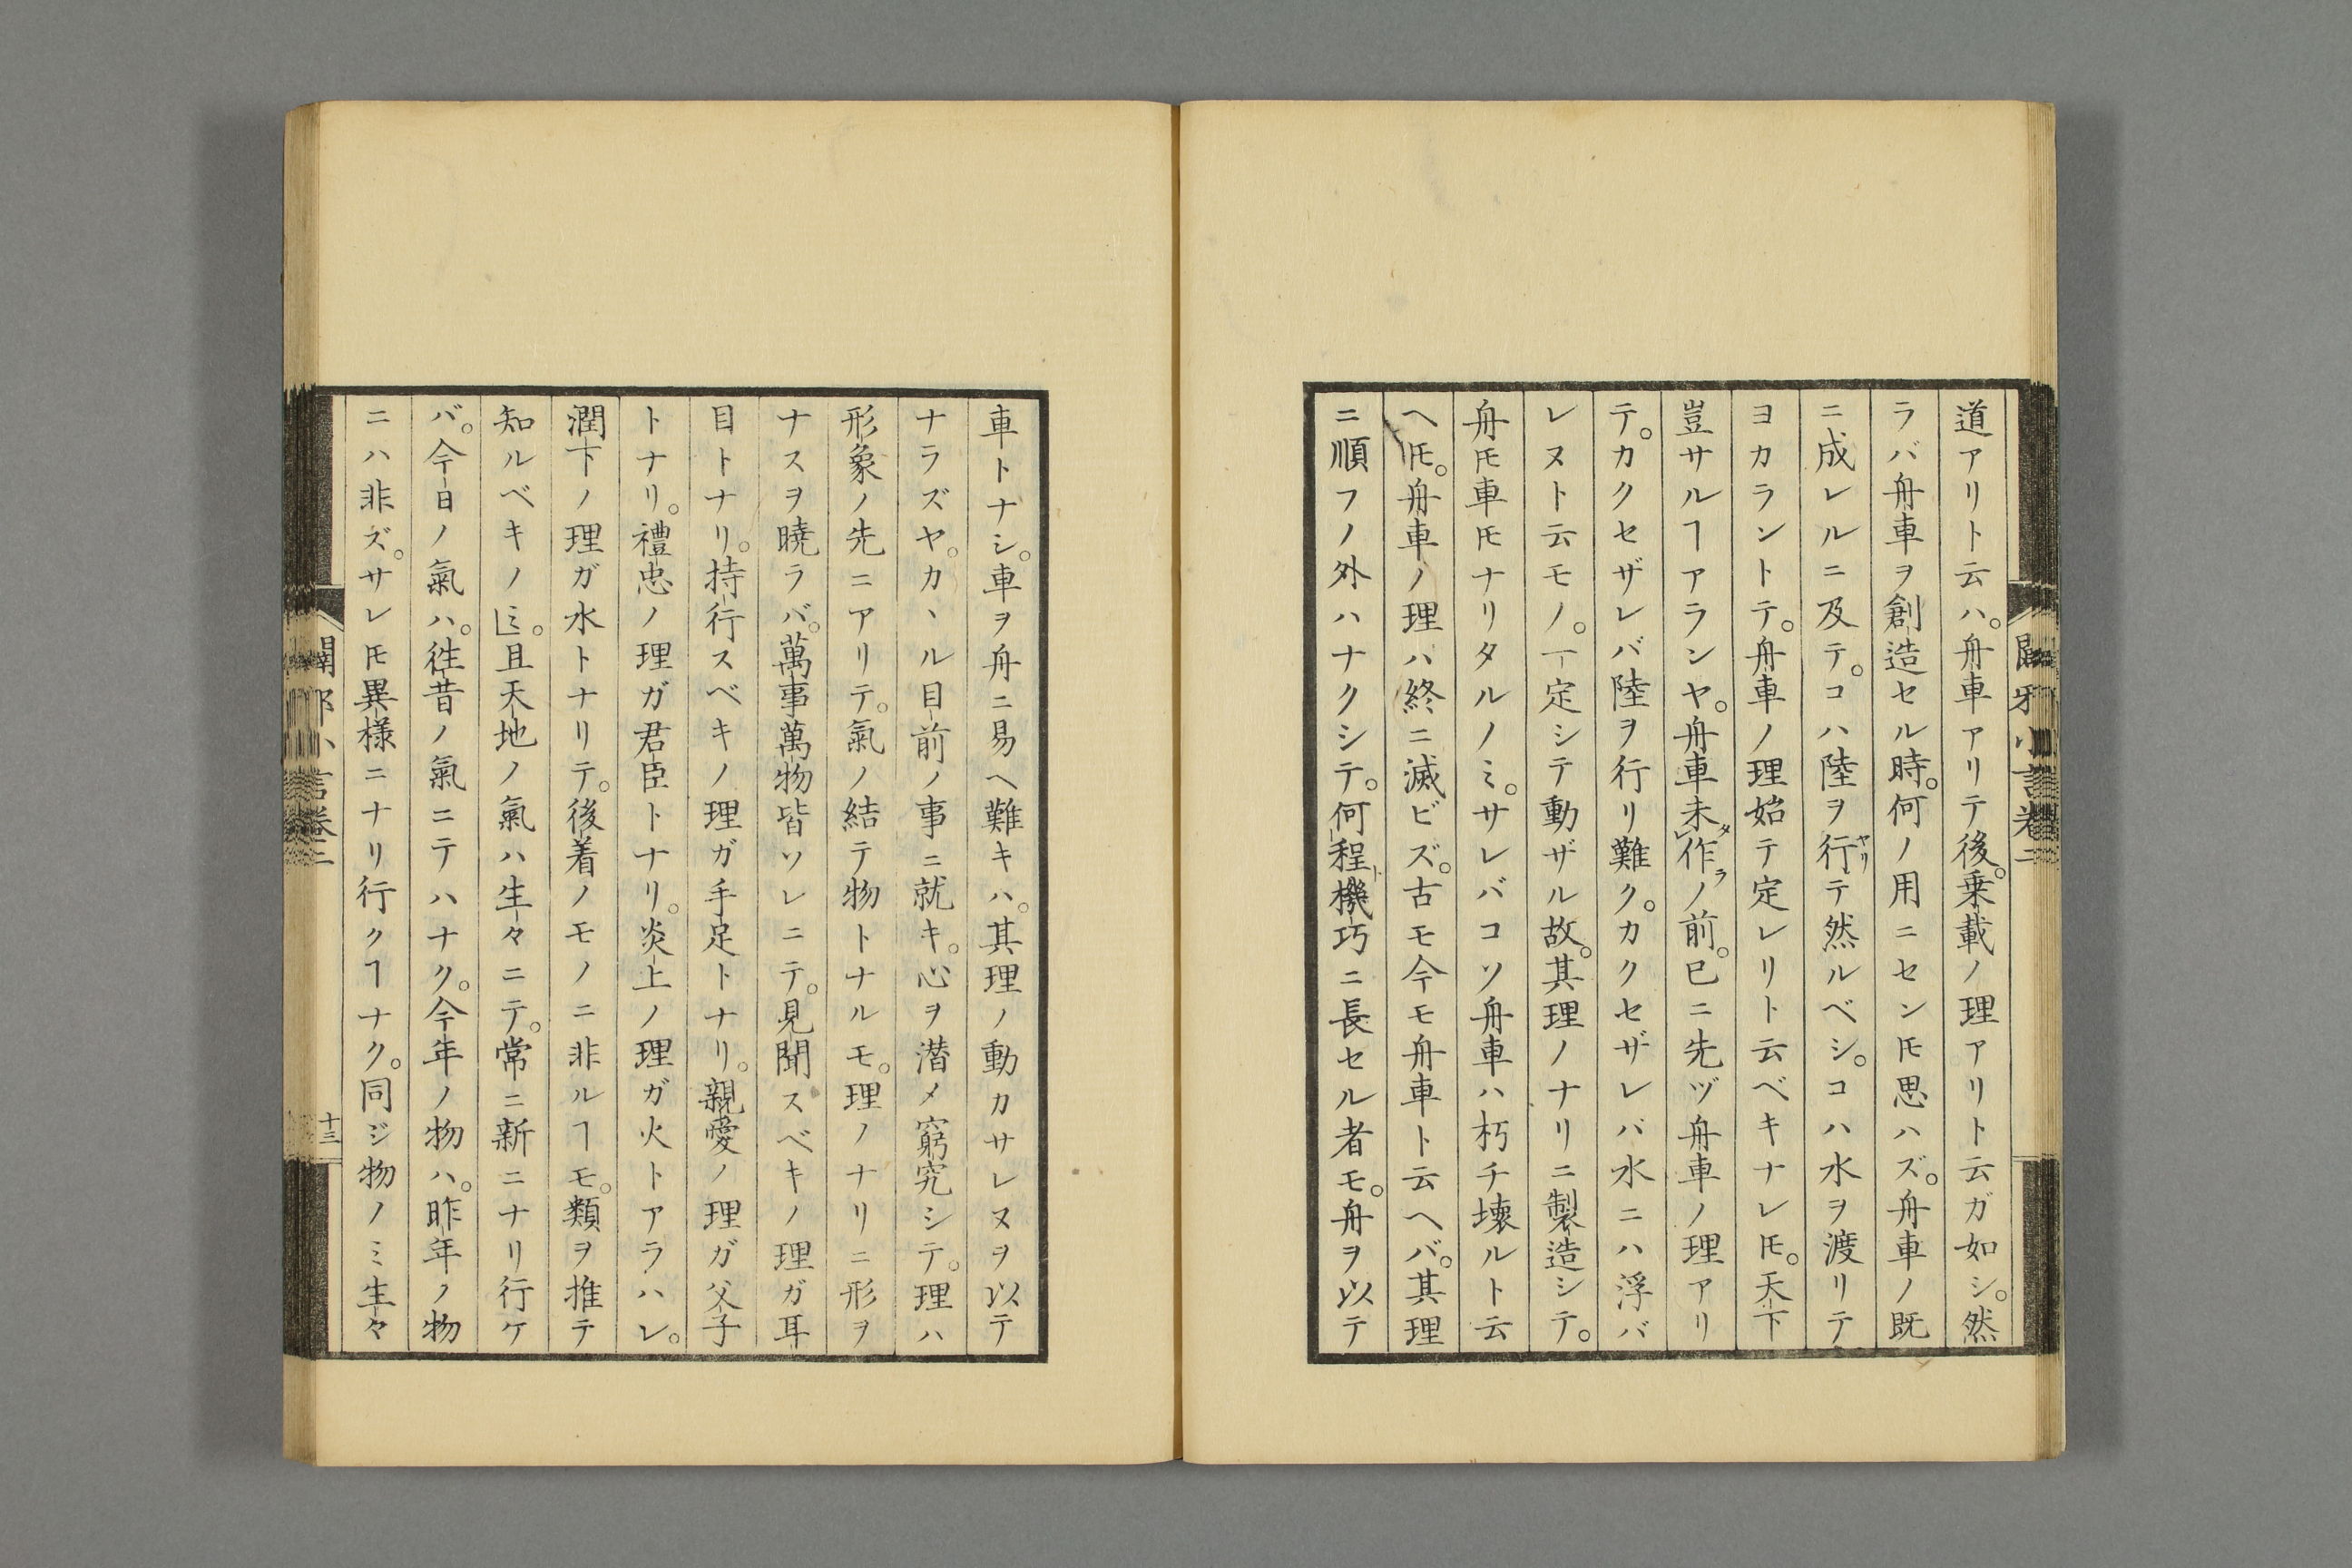 道アリト云ハ。舟車アリテ後。乗載ノ理アリト云ガ如シ。然
ラバ舟車ヲ創造セル時。何ノ用ニセン𪜈思ハズ。舟車ノ既
ニ成レルニ及テ。コハ陸ヲ行ヤリテ然ルベシ。コハ水ヲ渡リテ
ヨカラントテ。舟車ノ理始テ定レリト云ベキナレ𪜈。天下
豈サルヿアランヤ。舟車未タレ作ラノ前。已ニ先ヅ舟車ノ理アリ
テ。カクセザレバ陸ヲ行リ難ク。カクセザレバ水ニハ浮バ
レヌト云モノ。一定シテ動ザル故。其理ノナリニ製造シテ。
舟𪜈車𪜈ナリタルノミ。サレバコソ舟車ハ朽チ壊ルト云
ヘ𪜈。舟車ノ理ハ終ニ滅ビズ。古モ今モ舟車ト云ヘバ。其理
ニ順フノ外ハナクシテ。何程ト機巧ニ長セル者モ。舟ヲ以テ
車トナシ。車ヲ舟ニ易ヘ難キハ。其理ノ動カサレヌヲ以テ
ナラズヤ。カヽル目前ノ事ニ就キ。心ヲ潜メ窮究シテ。理ハ
形象ノ先ニアリテ。氣ノ結テ物トナルモ。理ノナリニ形ヲ
ナスヲ曉ラバ。萬事萬物皆ソレニテ。見聞スベキノ理ガ耳
目トナリ。持行スベキノ理ガ手足トナリ。親愛ノ理ガ父子
トナリ。禮忠ノ理ガ君臣トナリ。炎上ノ理ガ火トアラハレ。
潤下ノ理ガ水トナリテ。後着ノモノニ非ルヿモ。類ヲ推テ
知ルベキノミ。且天地ノ氣ハ生々ニテ。常ニ新ニナリ行ケ
バ。今日ノ氣ハ。徃昔ノ氣ニテハナク。今年ノ物ハ。昨年ノ物
ニハ非ズ。サレ𪜈異様ニナリ行クヿナク。同ジ物ノミ生々
闢邪小言卷二
十三